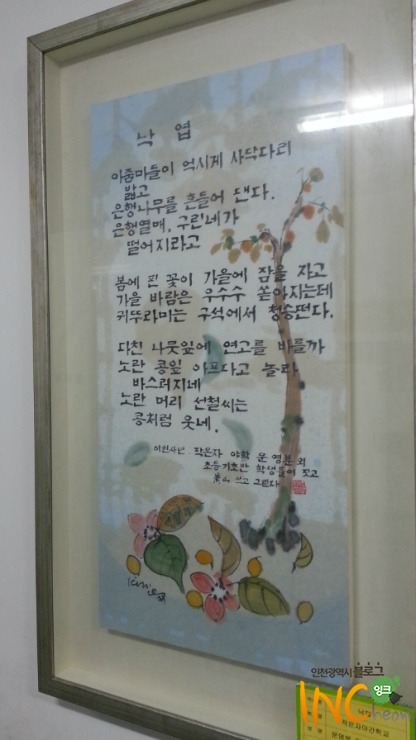 낙엽
아줌마들이 억시게 사닥다리
밟고
은행나무를 흔들어 댄다.
은행열매, 구린네가
떨어지라고
봄에 핀 꽃이 가을에 잠을 자고
가을 바람은 우수수 쏟아지는데
귀뚜라미는 구석에서 청승떤다.
다친 나뭇잎에 연고를 바를까
노란 콩잎 아프다고 놀라
바스러지네
노란 머리 선철씨는
콩처럼 웃네.
작은자 야학 문영분 외
초등기초반 학생들이 짓고
쓰고 그린다
인천광역시 블로그
INCheon
잉크